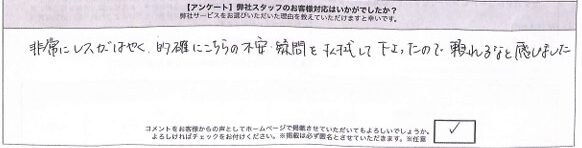 【アンケート】弊社スタッフのお客様対応はいかがでしたか?
弊社サービスをお選びいただいた理由を教えていただけますと幸いです。
非常にレスがはやく、的確にこちらの不安・疑問を払拭して下さったので頼れるなと感じました
コメントをお客様からの声としてホームページで掲載させていただいてもよろしいでしょうか。
よろしければチェックをお付けください。※掲載は必ず匿名とさせていただきます。※任意
✓